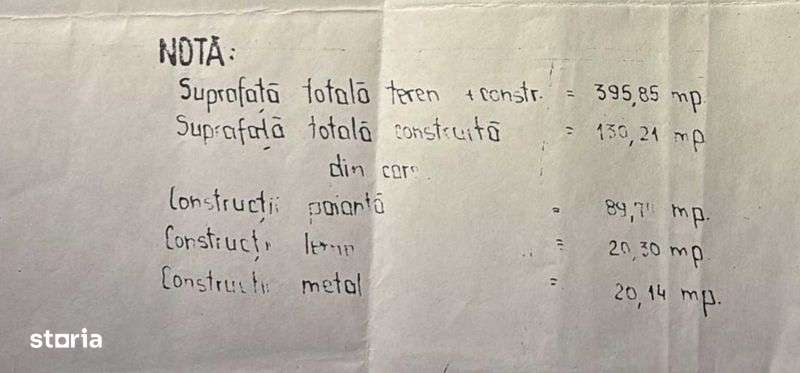 NOTĂ:
Suprafață totală teren + constr. = 395,85 mp
Suprafață totală construită = 130,21 mp
din care
Construcții paiantă = mp.
Construcții lemn = 20,30 mp
Construcții metal = 20,14 mp.
storia